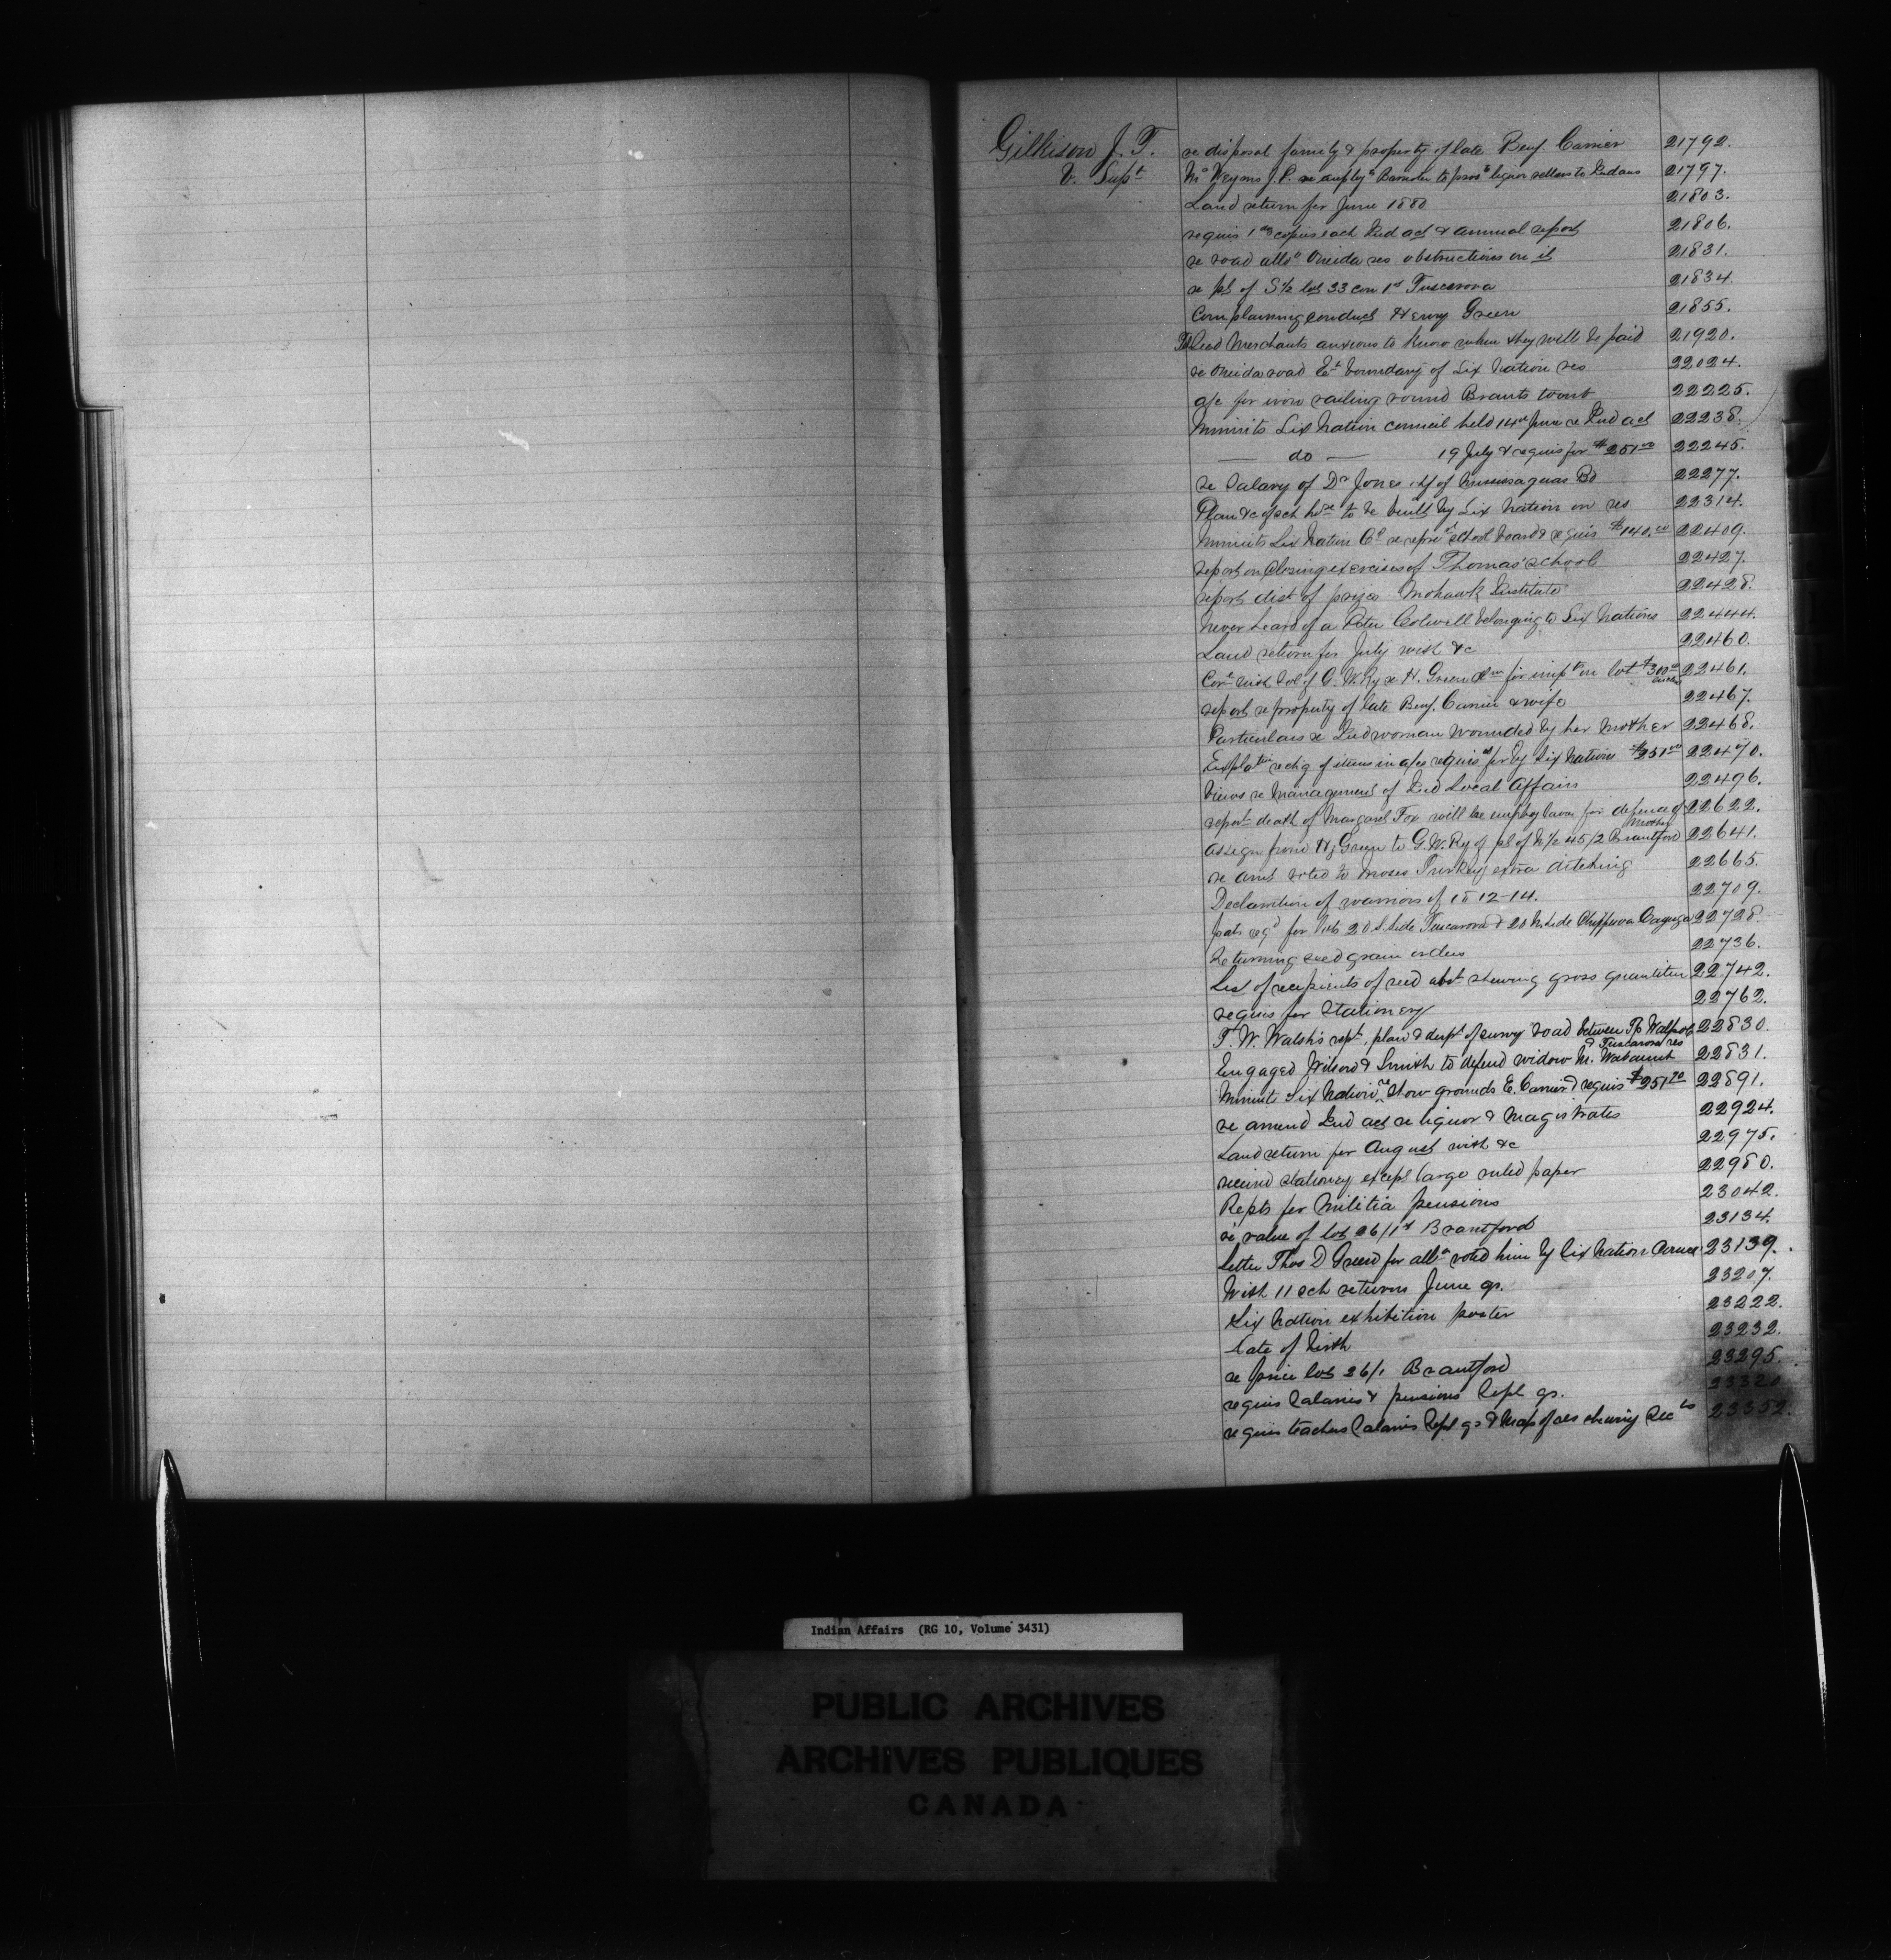 Gilkison J. T. re disposal family & property of late Benj Carrier 21792.
V. Supt Mc Weyms J.P. re employg Barrister to pros liquor sellers to Indians 21797.
Land return for June 1880 21803.
requis 1 copies each Ind act & annual report 21806.
re road allce Oneida res obstructions on it 21831.
re pt of S½ lot 33 con 1st Tuscarora 21834.
Complaining conduct Henry Green 21855.
lead Merchants anxious to know when they will be paid 21920.
re Oneida road Et boundary of Six Nation res 22024.
a/c for iron railing round Brants tomb 22225.
Minuits Six Nation council held 14th June re Ind act 22238.
— do — 19 July & requis for $251 00 22245.
re Salary of Dr Jones of Mississaguas Bd 22277.
Plan &c of sch hse to be built by Six Nation on res 22314.
Minuits Six Nation Cl re repre school board & requis $140.00 22409.
report on closing exercises of Thomas' school 22427.
report dist of prizes Mohawk Institute 22428.
Never heard of a Peter Colwell belonging to Six Nations 22444.
Land return for July with &c 22460.
Corce with Sol of G. W. Ry re H. Green clm for impts on lot $300 00 22461.
report re property of late Benj. Carrier & wife 22467.
Particulars re Ind woman wounded by her Mother 22468.
Explation re chg of items in a/cs requis for by Six Nations $251 00 22470.
Views re management of Ind Local Affairs 22496.
report death of Margaret Fox will be employ lawr for defence of mother 22622.
Assign from H. Green to G. W. Ry of pt of N½ 45/2 Brantford 22641.
re amt voted to Moses Turkey extra ditching 22665.
Declaration of warriors of 1812-14. 22709.
pats reqd for lots 20 S. Side Tuscarora & 20 N. Side Chippewa Cayuga 22728.
Returning seed grain orders 22736.
List of recipients of seed abst shewing gross quantities 22742.
requis for Stationery 22762.
T. W. Walsh's rept, plan & dept of survey road between Tp Walpole & Tuscarora res 22830.
Engaged Wilson & Smith to defend widow M. Wabaunt 22831.
Minuits Six Nation re Show grounds E. Carrier & requis $251 20 22891.
re amend Ind act re liquor & Magistrates 22924.
Land return for August with &c 22975.
received stationery except large ruled paper 22980.
Repts for Militia pensions 23042.
re value of lot 26/1st Brantford 23134.
Letter Thos D Green for allce voted him by Six Nation Council 23139.
With 11 sch returns June qr. 23207.
Six Nation exhibition poster 23222.
date of birth 23232.
re price lot 26/1 Brantford 23295.
requis Salaries & pensions Sept qr. 23320
requis teachers Salaries Sept qr & Map of res shewing Secs 23352.
Indian Affairs (RG 10, Volume 3431)
PUBLIC ARCHIVES
ARCHIVES PUBLIQUES
CANADA